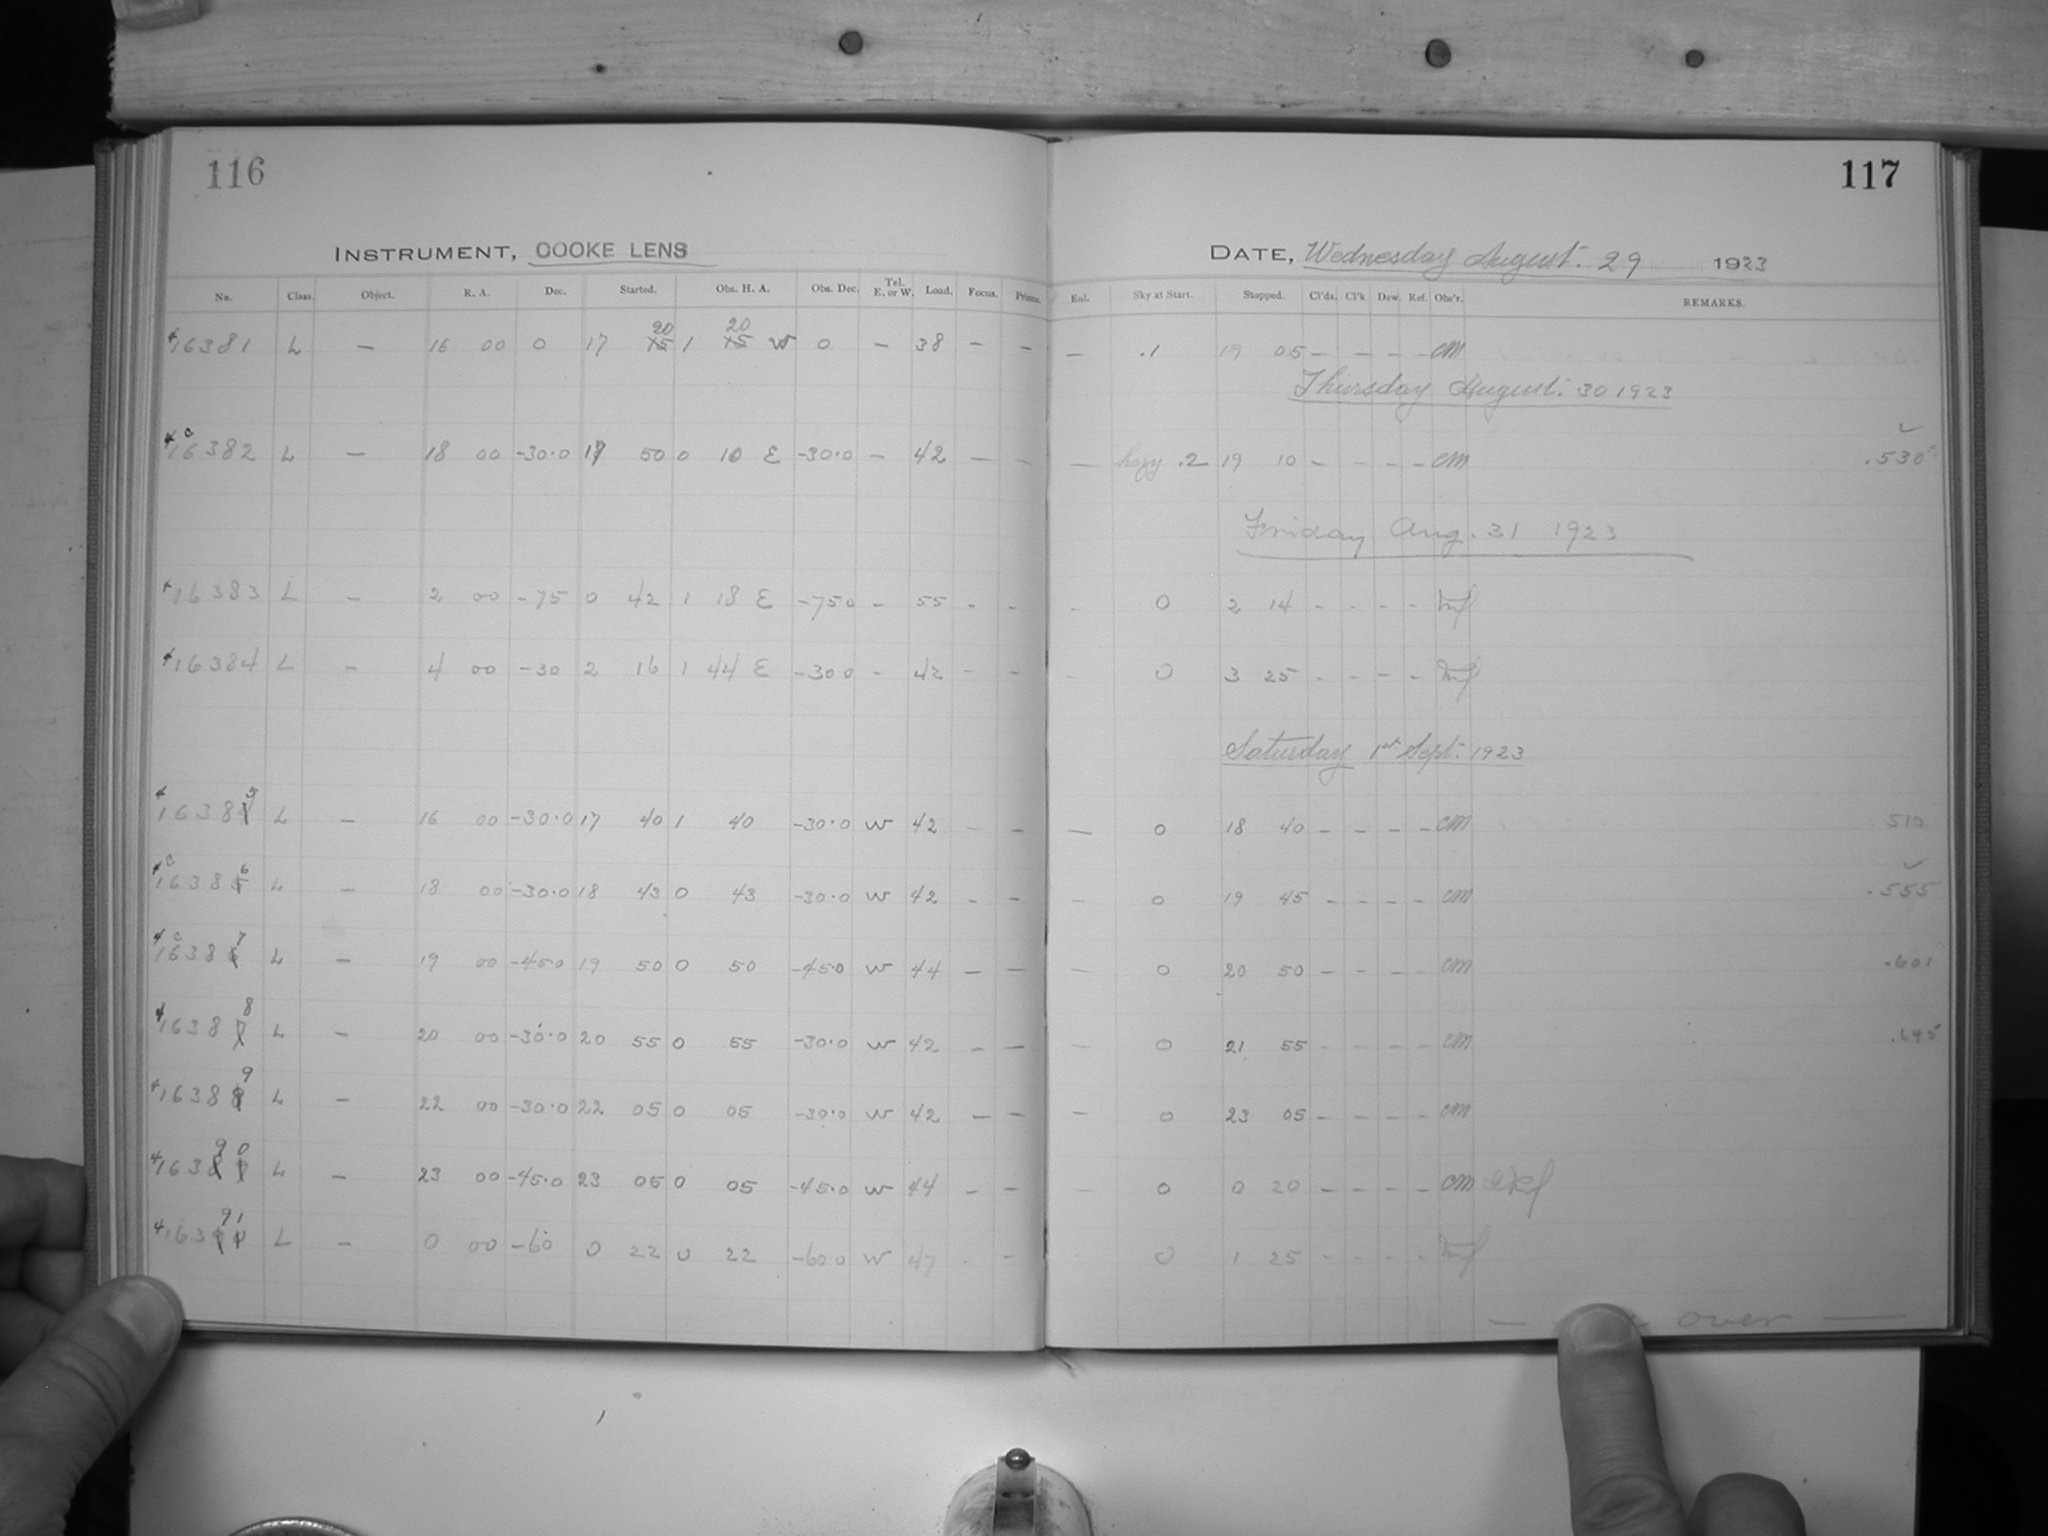 116
117
INSTRUMENT, COOKE LENS
DATE, Wednesday August. 29 1923
No. Class. Object. R. A. Dec. Started. Obs. H. A. Obs. Dec. Tel. E. or W. Load. Focus. Prisms. Enl. Sky at Start. Stopped. Cl'ds. Cl'k Dew. Ref. Obs'r. REMARKS.
20 20
16381 L — 16 00 0 17 15 1 15 W 0 — 38 — — — .1 19 05 — — — — CM
Thursday August. 30 1923
c
16382 L — 18 00 -30.0 17 50 0 10 E -30.0 — 42 — — — hazy .2 19 10 — — — — CM .530
Friday Aug. 31 1923
16383 L — 2 00 -75 0 42 1 18 E -75 0 — 55 - - - 0 2 14 - - - -
16384 L — 4 00 -30 2 16 1 44 E -30 0 — 42 - - - 0 3 25 - - - -
Saturday 1st Sept. 1923
5
16384 L — 16 00 -30.0 17 40 1 40 -30.0 W 42 — — — 0 18 40 — — — — CM 510
c 6
16385 L — 18 00 -30.0 18 43 0 43 -30.0 W 42 - - — 0 19 45 - - - - CM .555
c 7
16386 L — 19 00 -45.0 19 50 0 50 -45.0 W 44 — — — 0 20 50 — — — — CM .601
8
16387 L — 20 00 -30.0 20 55 0 55 -30.0 W 42 - — — 0 21 55 - - - - CM .645
9
16388 L — 22 00 -30.0 22 05 0 05 -30.0 W 42 — — — 0 23 05 - - - - CM
9 0
16389 L — 23 00 -45.0 23 05 0 05 -45.0 W 44 - - — 0 0 20 — — — — CM
91
163 L — 0 00 -60 0 22 0 22 -60 0 W 47 - - 0 1 25 - - - -
— over —